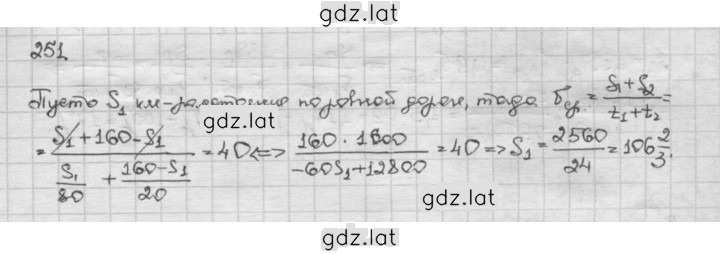 gdz.lat
251
Пусть S₁ км-расстояние по ровной дороге, тогда ϑ ср. = (S₁ + S₂)/(t₁ + t₂) =
gdz.lat
= (S₁ + 160 - S₁)/(S₁/80 + (160 - S₁)/20) = 40 <=> (160 · 1600)/(-60S₁ + 12800) = 40 => S₁ = 2560/24 = 106 2/3.
gdz.lat
gdz.lat